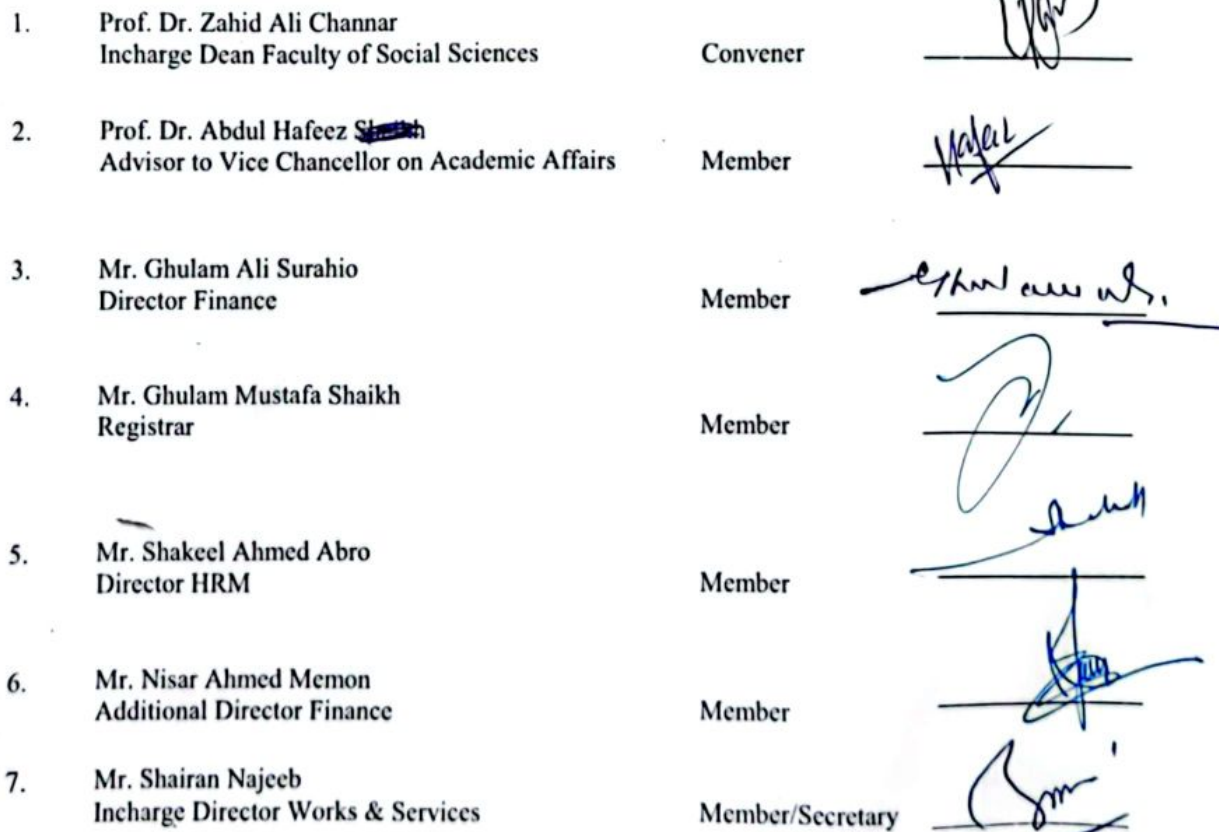 1. Prof. Dr. Zahid Ali Channar
Incharge Dean Faculty of Social Sciences Convener
2. Prof. Dr. Abdul Hafeez
Advisor to Vice Chancellor on Academic Affairs Member
3. Mr. Ghulam Ali Surahio
Director Finance Member
4. Mr. Ghulam Mustafa Shaikh
Registrar Member
5. Mr. Shakeel Ahmed Abro
Director HRM Member
6. Mr. Nisar Ahmed Memon
Additional Director Finance Member
7. Mr. Shairan Najeeb
Incharge Director Works & Services Member/Secretary